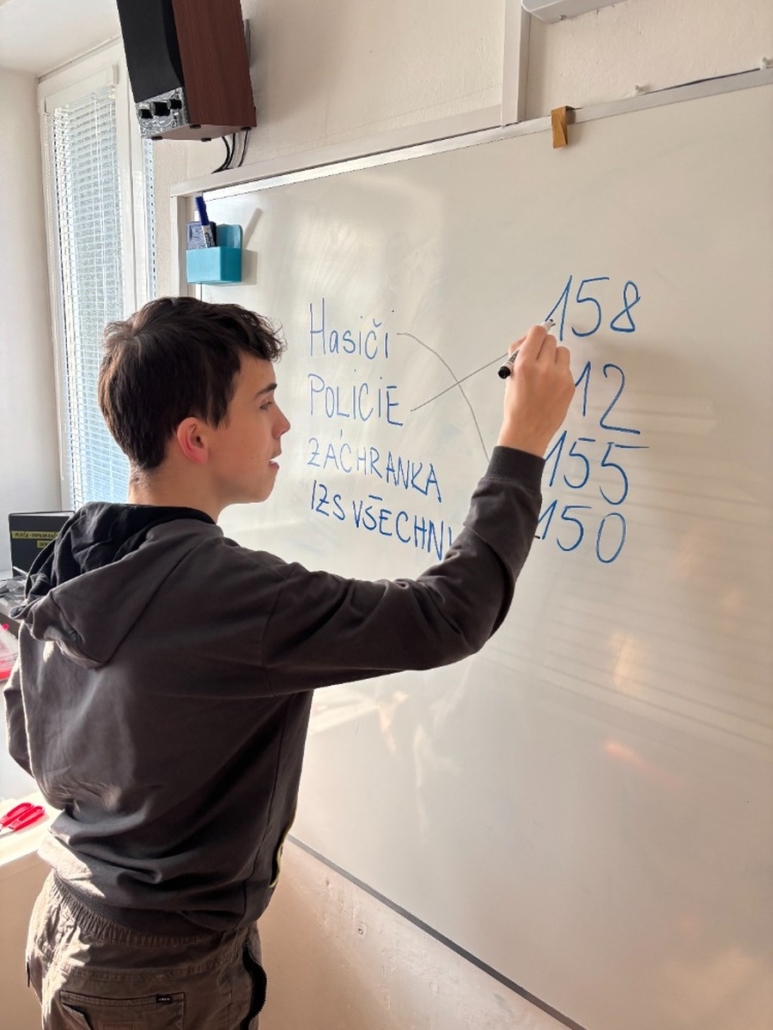 Hasiči
POLICIE
ZÁCHRANKA
IZS VŠECHNY
158
112
155
150